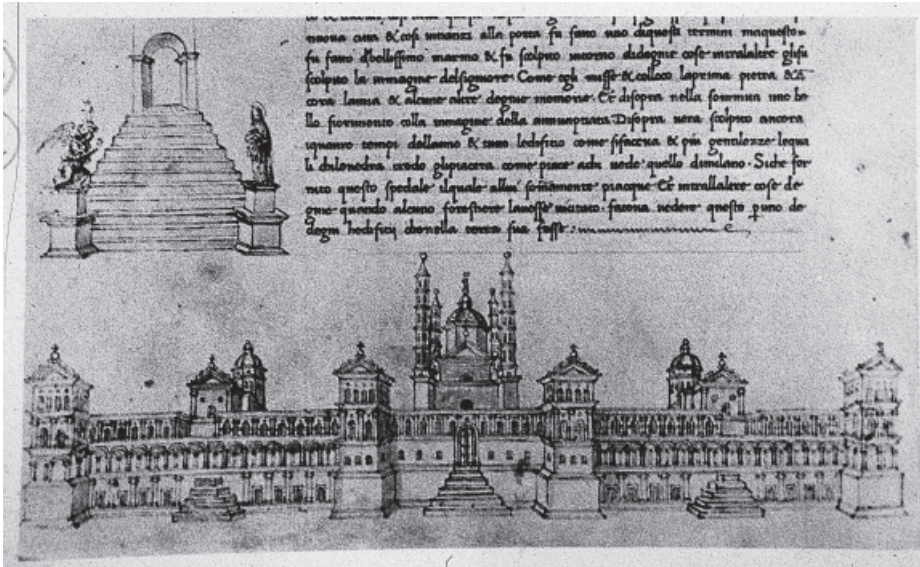 nuova citta & cosi innanzi alla porta fu fatto uno di questi termini ma questo
fu fatto di bellissimo marmo & fu scolpito intorno di degnie cose intra laltre glifu
scolpito la immagine del signiore Come egli misse & colloco la prima pietra &
cora lamia & alcune altre degnie memorie Et disopra nella sommita uno be
llo finimento colla immagine della annuntiata Disopra vera scolpito ancora
iquatro tempi dellanno & tutto ledifitio come sifaceva & piu gentilezze lequa
li credo glipiacera come piace achi vede quello dimilano. Siche for
nito questo spedale ilquale allui sommamente piacque Et intrallaltre cose de
gnie quando alcuno forestiere lavesse visitato faceva vedere questo p uno de
degni hedifitij che nella terra sua fusse